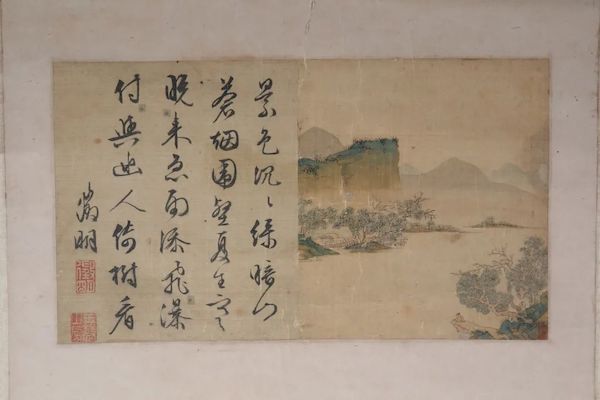 景色沉〻綠暗山
蒼烟圍壑夏生寒
晚来急雨添飛瀑
付與幽人倚樹看
徵明